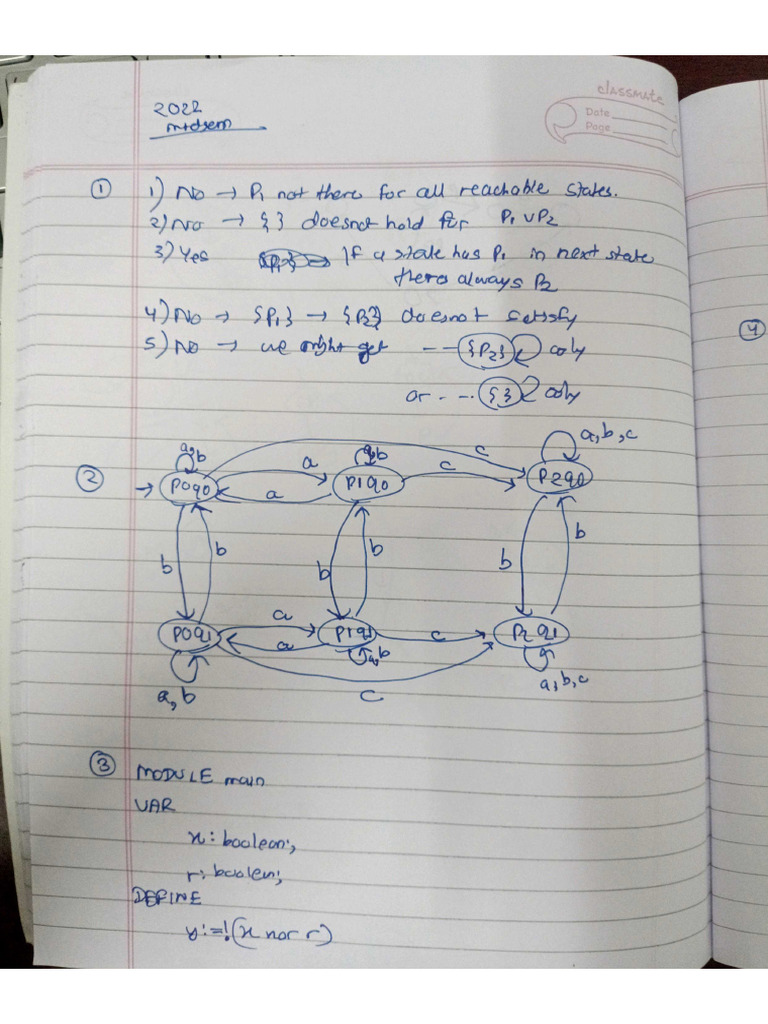 classmate
Date
Page
2022
midsem
① 1) No → P₁ not there for all reachable states.
2) No → {} doesnot hold for P₁ ∪ P₂
3) Yes If a state has P₁ in next state
theres always P₂
4) No → {P₁} → {P₂} doesnot satisfy
5) No → we might get -- {P₂} only
or - -- {} only
④
② → P0q0 a,b a a P1q0 a,b c c P2q0 a,b,c
b b b b b b
P0q1 a a P1q1 a,b c P2q1
a,b c a,b,c
③ MODULE main
VAR
x: boolean;
r: boolen;
DEFINE
y:=!(x nor r)